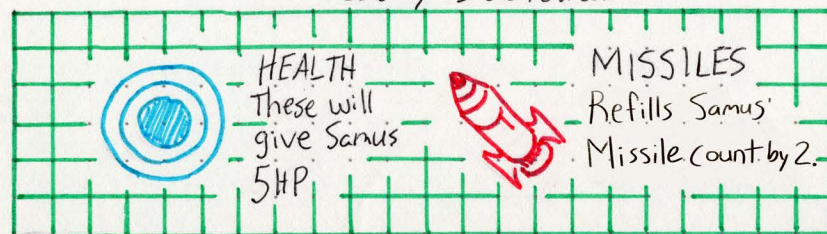 HEALTH
These will
give Samus
5HP
MISSILES
Refills Samus'
Missile count by 2.